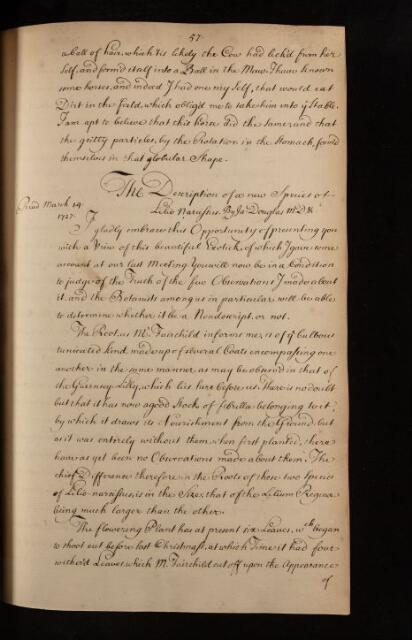 57
a Ball of hair, which 'tis likely the Cow had lick'd from her
self, and form'd itself into a Ball in the Maw. I have known
some horses, and indeed I had one my self, that would eat
Dirt in the field, which oblig'd me to take him into ye Stable.
I am apt to believe that this horse did the same, and that
the gritty particles, by the Rotation in the Stomach, form'd
themselves in that globular Shape.
The Description of a new Species of
Lilio Narcissus. By Ja: Douglas M.D. &c
Read March 14
1727.
I gladly embrace this Opportunity of presenting you
with a View of this beautiful Exotick, of which I gave some
account at our last Meeting. You will now be in a Condition
to judge of the Truth of the few Observations I made about
it, and the Botanists among us in particular will be able
to determine whether it be a Nondescript, or not.
The Root, as Mr. Fairchild informs me, is of ye bulbous
tunicated kind, made up of several Coats encompassing one
another in the same manner as may be observ'd in that of
the Guernsey Lilly, which lies here before us. There is no doubt
but that it has now a good Stock of fibrillæ belonging to it,
by which it draws its Nourishment from the Ground, but
as it was entirely without them when first planted, there
have as yet been no Observations made about them. The
chief Difference therefore in the Roots of those two Species
of Lilio-narcissus is in the Size, that of the Lilium Reginæ
being much larger than the other.
The flowering Plant has at present six Leaves, wch began
to shoot out before last Christmass, at which Time it had four
wither'd Leaves, which Mr. Fairchild cut off upon the Appearance
of